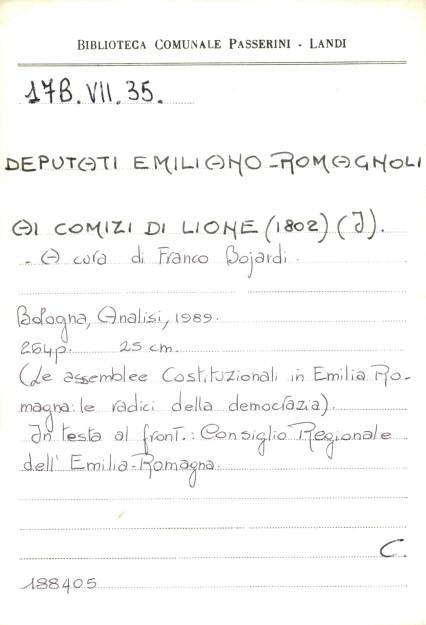 BIBLIOTECA COMUNALE PASSERINI - LANDI
17B.VII.35.
DEPUTATI EMILIANO-ROMAGNOLI
AI COMIZI DI LIONE (1802) (I).
- A cura di Franco Bojardi.
Bologna, Analisi, 1989.
264p. 25 cm.
(Le assemblee Costituzionali in Emilia Ro-
magna: le radici della democrazia).
In testa al front.: Consiglio Regionale
dell' Emilia-Romagna.
C.
188405